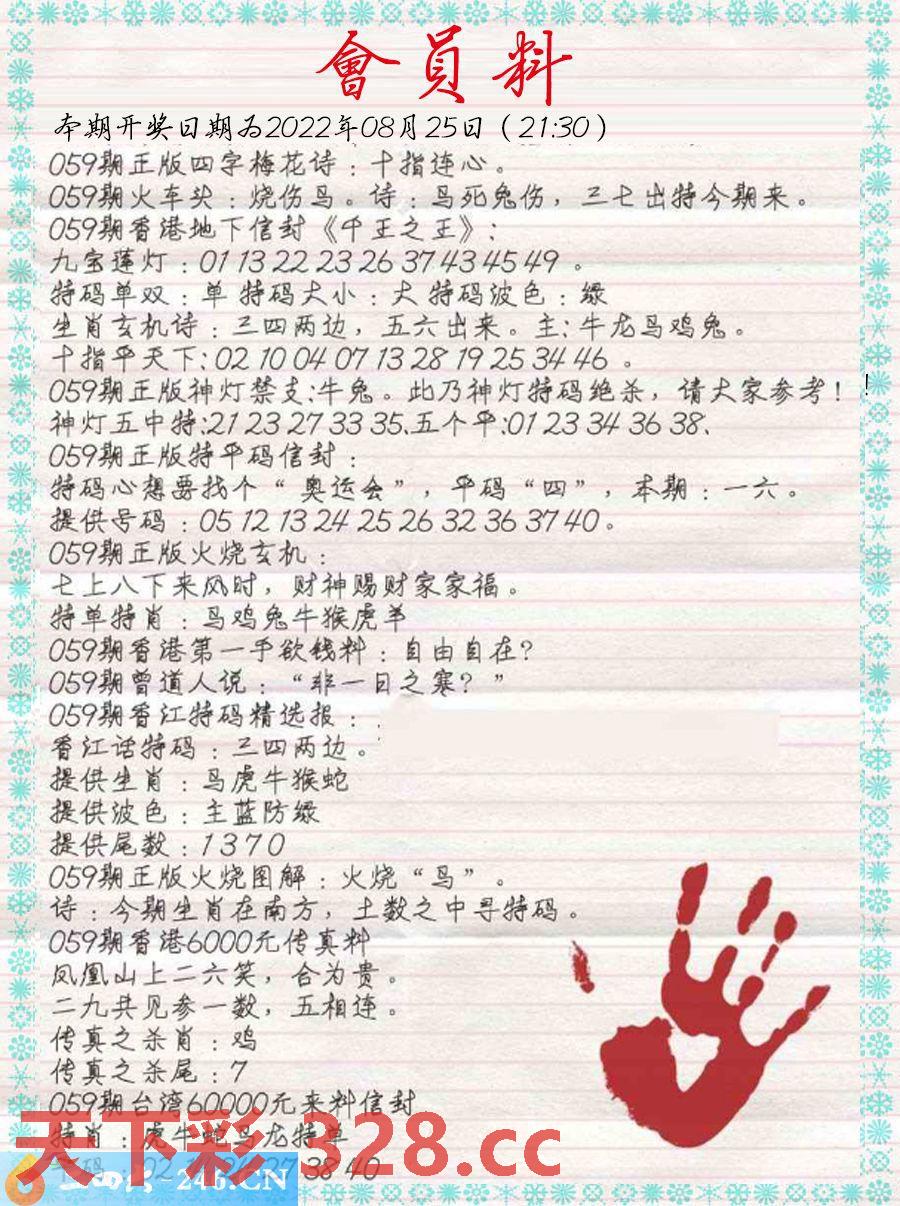 會員料
本期开奖日期为2022年08月25日（21:30）
059期正版四字梅花诗：十指连心。
059期火车头：烧伤鸟。诗：鸟死兔伤，三七出特今期来。
059期香港地下信封《千王之王》：
九宝莲灯：01 13 22 23 26 37 43 45 49 。
特码单双：单 特码大小：大 特码波色：绿
生肖玄机诗：三四两边，五六出来。主：牛龙马鸡兔。
十指平天下：02 10 04 07 13 28 19 25 34 46 。
059期正版神灯禁支：牛兔。此乃神灯特码绝杀，请大家参考！！
神灯五中特:21 23 27 33 35、五个平:01 23 34 36 38、
059期正版特平码信封：
特码心想要找个“奥运会”，平码“四”，本期：一六。
提供号码：05 12 13 24 25 26 32 36 37 40。
059期正版火烧玄机：
七上八下来风时，财神赐财家家福。
特单特肖：马鸡兔牛猴虎羊
059期香港第一手欲钱料：自由自在？
059期曾道人说：“非一日之寒？”
059期香江特码精选报：
香江话特码：三四两边。
提供生肖：马虎牛猴蛇
提供波色：主蓝防绿
提供尾数：1 3 7 0
059期正版火烧图解：火烧“鸟”。
诗：今期生肖在南方，土数之中寻特码。
059期香港6000元传真料
凤凰山上二六笑，合为贵。
二九共见参一数，五相连。
传真之杀肖：鸡
传真之杀尾：7
059期台湾60000元来料信封
特肖：虎牛蛇马龙特单
天下彩 328.cc
38 40
246.CN